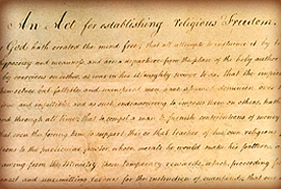 An Act for establishing religious Freedom.
God hath created the mind free; that all attempts to influence it by t
hypocrisy and meanness, and are a departure from the plan of the holy author
by coercions on either, as was in his Almighty power to do, that the impious
themselves but fallible and uninspired men, have assumed dominion over t
true and infallible, and as such endeavouring to impose them on others, hath
and through all time; that to compel a man to furnish contributions of money
that even the forcing him to support this or that teacher of his own religious
to the particular pastor, whose morals he would make his pattern, a
from the Ministry those temporary rewards, which proceeding from
and unremitting labours for the instruction of mankind; that our